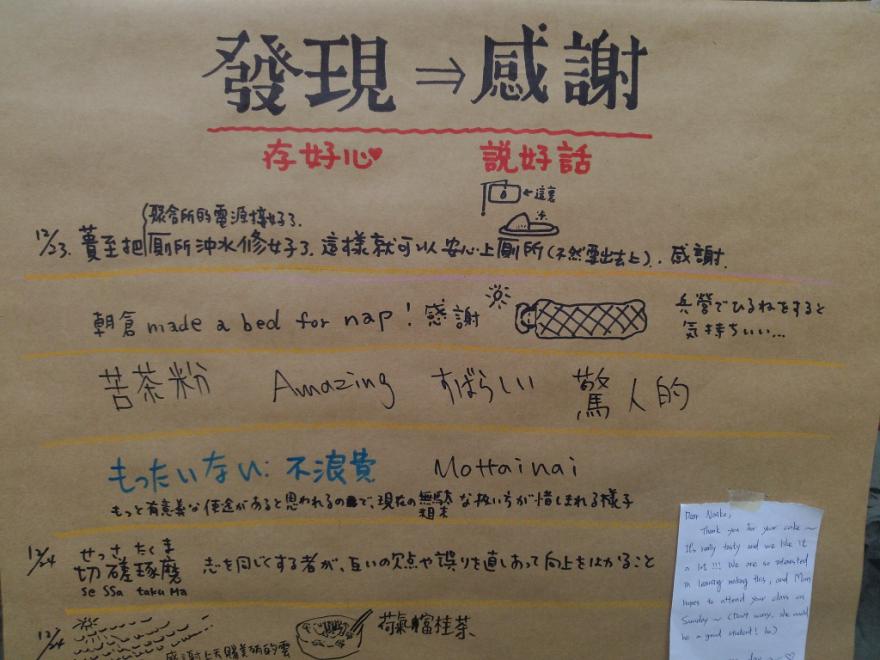 發現⇒感謝
存好心♥ 說好話
←這裏
聚會所的電源接好了.
12/23. 蕢至把廁所沖水修好了. 這樣就可以安心上廁所(不然要出去上). 感謝.
朝倉 made a bed for nap! 感謝
兵營でひるねをすると
気持ちいい...
苦茶粉 Amazing すばらしい 驚人的
もったいない: 不浪費 Mottainai
もっと有意義な使途があると思われるので、現在の無駄
粗末
な扱い方が惜しまれる様子
12/24 せっさ たくま
切磋琢磨 志を同じくする者が、互いの欠点や誤りを直しあって向上をはかること
se ssa taku ma
12/24
感謝上天賜美麗的雲
桂茶.
Dear Naoko,
Thank you for your cake ~
It's really tasty and we like it
a lot!!! We are so interested
in learning making this, and
hopes to attend your class on
Sunday ~ (Don't worry, she could
be a good student!